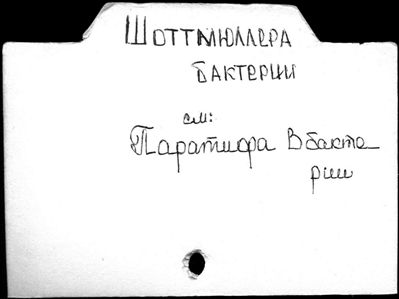 Шоттмюллера
бактерии
см:
Паратифа В бакте
рии